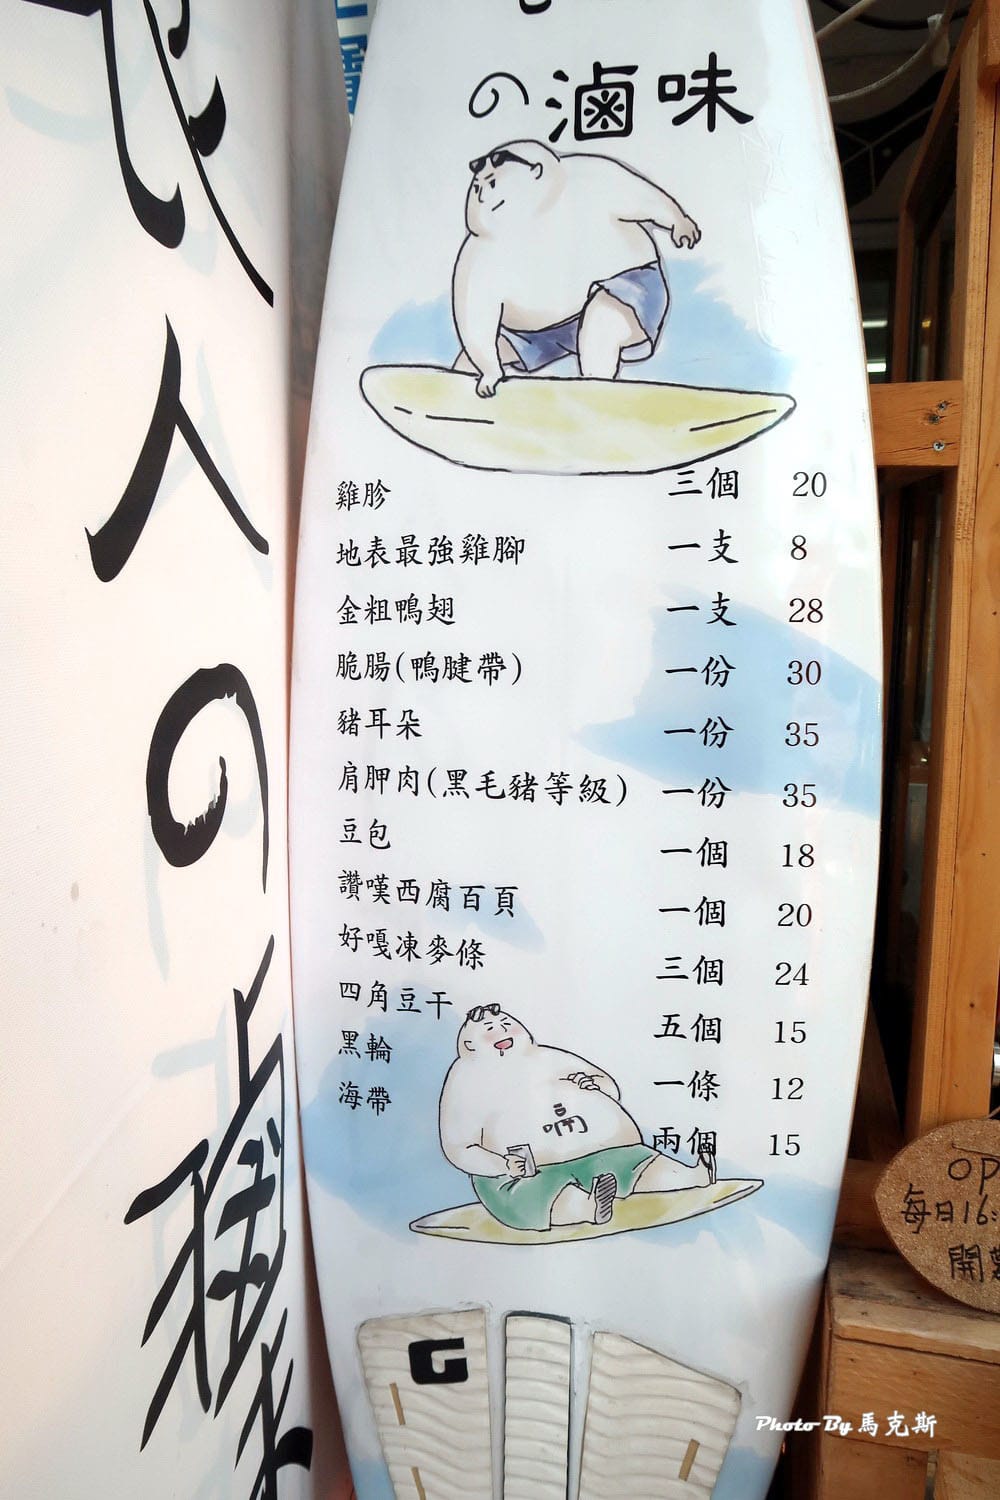 人の滷味
の滷味
雞胗 三個 20
地表最強雞腳 一支 8
金粗鴨翅 一支 28
脆腸(鴨腱帶) 一份 30
豬耳朵 一份 35
肩胛肉(黑毛豬等級) 一份 35
豆包 一個 18
讚嘆西腐百頁 一個 20
好嘎凍麥條 三個 24
四角豆干 五個 15
黑輪 一條 12
海帶 兩個 15
嗝
G
OP
每日16:
開
Photo By 馬克斯